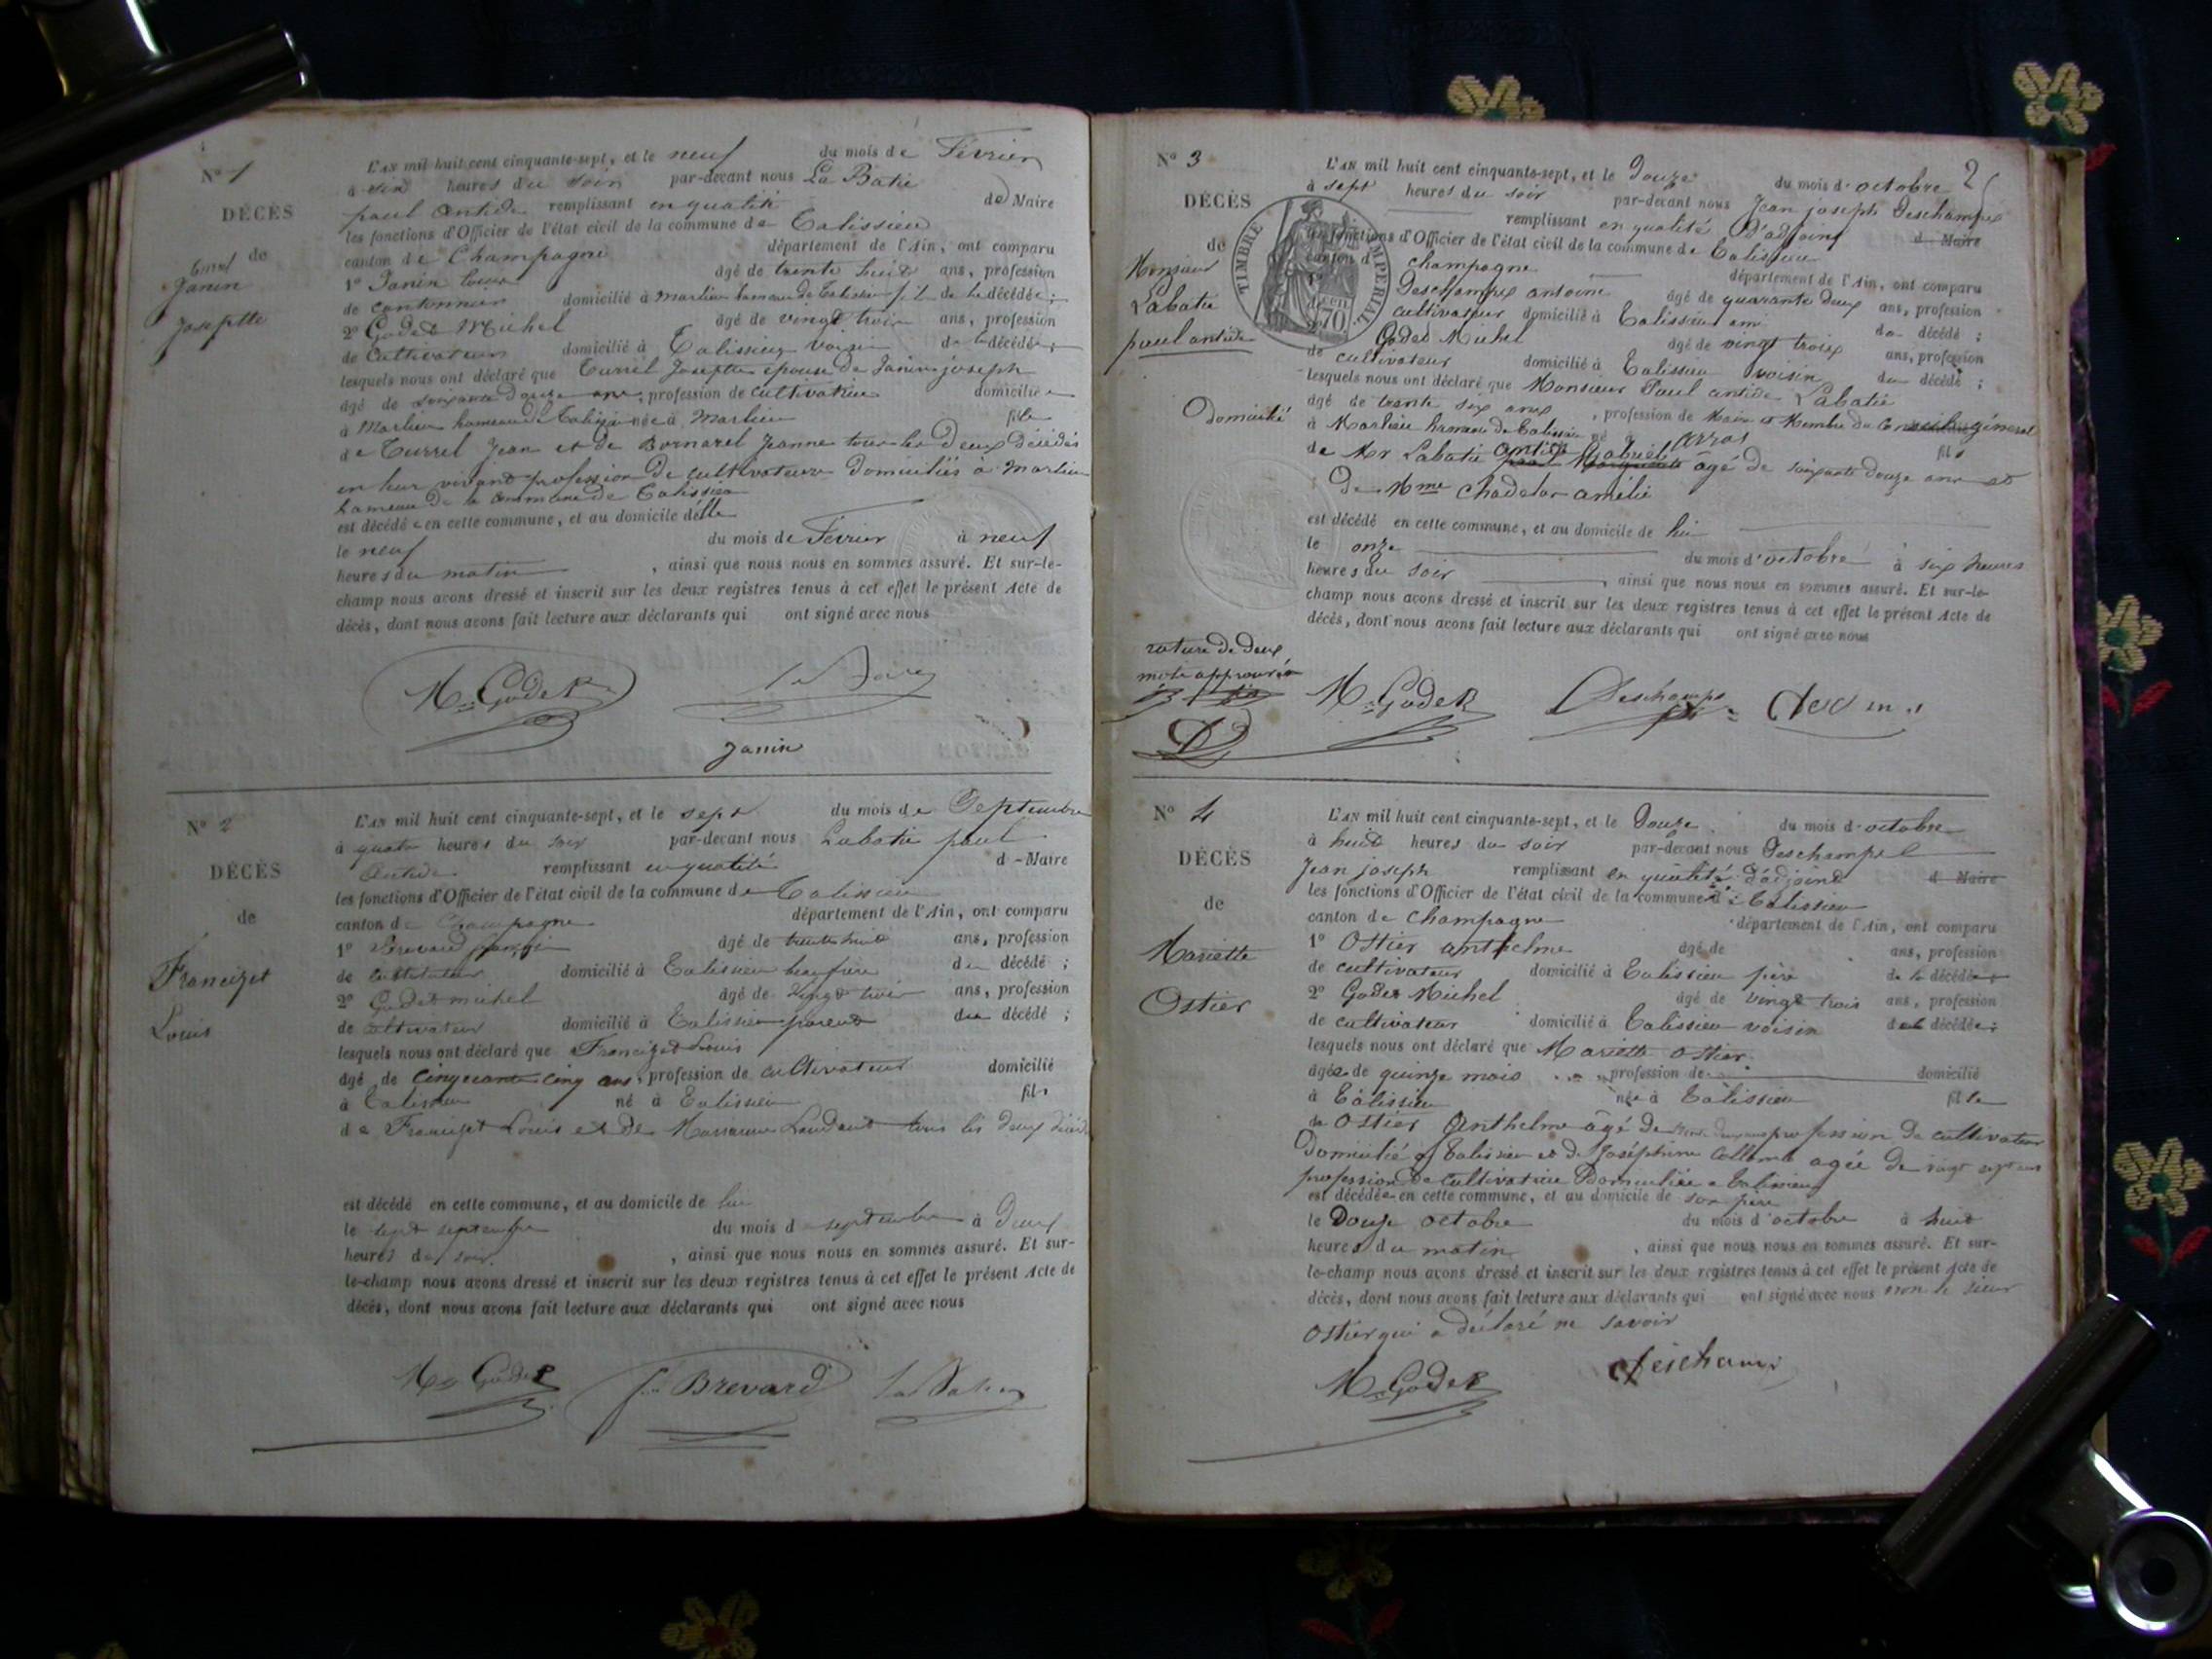 N° 1
DÉCÈS
de
Janin
Josephte
L'AN mil huit cent cinquante-sept, et le neuf du mois de Février
à six heures du soir par-devant nous La Batie
paul antide remplissant en qualité de Maire
les fonctions d'Officier de l'état civil de la commune de Talissieu
canton de Champagne département de l'Ain, ont comparu
1° Janin âgé de trente huit ans, profession
de cantonnier domicilié à Marlieu hameau de Talissieu fils de la décédée;
2° Godet Michel âgé de vingt trois ans, profession
de Cultivateur domicilié à Talissieu voisin de la décédée;
lesquels nous ont déclaré que Turrel Josephte épouse de Janin joseph
âgé de soixante douze ans, profession de cultivatrice domiciliée
à Marlieu hameau de Talissieu née à Marlieu fille
de Turrel Jean et de Bornarel Jeanne tous les deux décédés
en leur vivant profession de cultivateurs domiciliés à Marlieu
hameau de la commune de Talissieu
est décédée en cette commune, et au domicile d'elle
le neuf du mois de Février à neuf
heures du matin, ainsi que nous nous en sommes assuré. Et sur-le-
champ nous avons dressé et inscrit sur les deux registres tenus à cet effet le présent Acte de
décès, dont nous avons fait lecture aux déclarants qui ont signé avec nous
M. Godet
Janin
N° 2
DÉCÈS
de
Francizet
Louis
L'AN mil huit cent cinquante-sept, et le sept du mois de Septembre
à quatre heures du soir par-devant nous Labatie paul
Antide remplissant en qualité de Maire
les fonctions d'Officier de l'état civil de la commune de Talissieu
canton de Champagne département de l'Ain, ont comparu
1° Brevard âgé de trente huit ans, profession
de domicilié à Talissieu beau frère du décédé;
2° Godet michel âgé de vingt trois ans, profession
de cultivateur domicilié à Talissieu parent du décédé;
lesquels nous ont déclaré que Francizet Louis
âgé de cinquante cinq ans, profession de cultivateur domicilié
à Talissieu né à Talissieu fils
de Francizet Louis et de tous les deux décédés
est décédé en cette commune, et au domicile de lui
le sept septembre du mois de septembre à deux
heures du soir, ainsi que nous nous en sommes assuré. Et sur-
le-champ nous avons dressé et inscrit sur les deux registres tenus à cet effet le présent Acte de
décès, dont nous avons fait lecture aux déclarants qui ont signé avec nous
M. Godet Brevard
2
N° 3
DÉCÈS
de
Monsieur
Labatie
paul antide
Domicilié
TIMBRE IMPERIAL
70
L'AN mil huit cent cinquante-sept, et le Douze du mois d'octobre
à sept heures du soir par-devant nous Jean joseph Deschamps
remplissant en qualité d'adjoint d Maire
les fonctions d'Officier de l'état civil de la commune de Talissieu
canton d champagne département de l'Ain, ont comparu
Deschamps antoine âgé de quarante deux ans, profession
cultivateur domicilié à Talissieu ami du décédé;
Godet Michel âgé de vingt trois ans, profession
de cultivateur domicilié à Talissieu voisin du décédé;
lesquels nous ont déclaré que Monsieur Paul antide Labatie
âgé de trente six ans, profession de Maire et Membre du Conseil général
à Marlieu hameau de Talissieu né fils
de Mr Labatie antide Gabriel âgé de soixante douze ans et
De Mme Chadelas amélie
est décédé en cette commune, et au domicile de lui
le onze du mois d'octobre à six heures
heures du soir, ainsi que nous nous en sommes assuré. Et sur-le-
champ nous avons dressé et inscrit sur les deux registres tenus à cet effet le présent Acte de
décès, dont nous avons fait lecture aux déclarants qui ont signé avec nous
rature de deux
mots approuvés
D
M. Godet Deschamps
N° 4
DÉCÈS
de
Mariette
Ostier
L'AN mil huit cent cinquante-sept, et le Douze du mois d'octobre
à huit heures du soir par-devant nous Deschamps
Jean joseph remplissant en qualité d'adjoint d Maire
les fonctions d'Officier de l'état civil de la commune de Talissieu
canton de champagne département de l'Ain, ont comparu
1° Ostier anthelme âgé de ans, profession
de cultivateur domicilié à Talissieu père de la décédée;
2° Godet Michel âgé de vingt trois ans, profession
de cultivateur domicilié à Talissieu voisin de la décédée;
lesquels nous ont déclaré que Mariette Ostier
âgée de quinze mois profession de domicilié
à Talissieu née à Talissieu fille
de Ostier Anthelme âgé de profession de cultivateur
Domicilié à Talissieu et de Joséphine agée de vingt sept ans
profession de cultivatrice Domiciliée a Talissieu
est décédée en cette commune, et au domicile de son père
le Douze octobre du mois d'octobre à huit
heures du matin, ainsi que nous nous en sommes assuré. Et sur-
le-champ nous avons dressé et inscrit sur les deux registres tenus à cet effet le présent Acte de
décès, dont nous avons fait lecture aux déclarants qui ont signé avec nous non le sieur
Ostier qui a déclaré ne savoir
M. Godet Deschamps